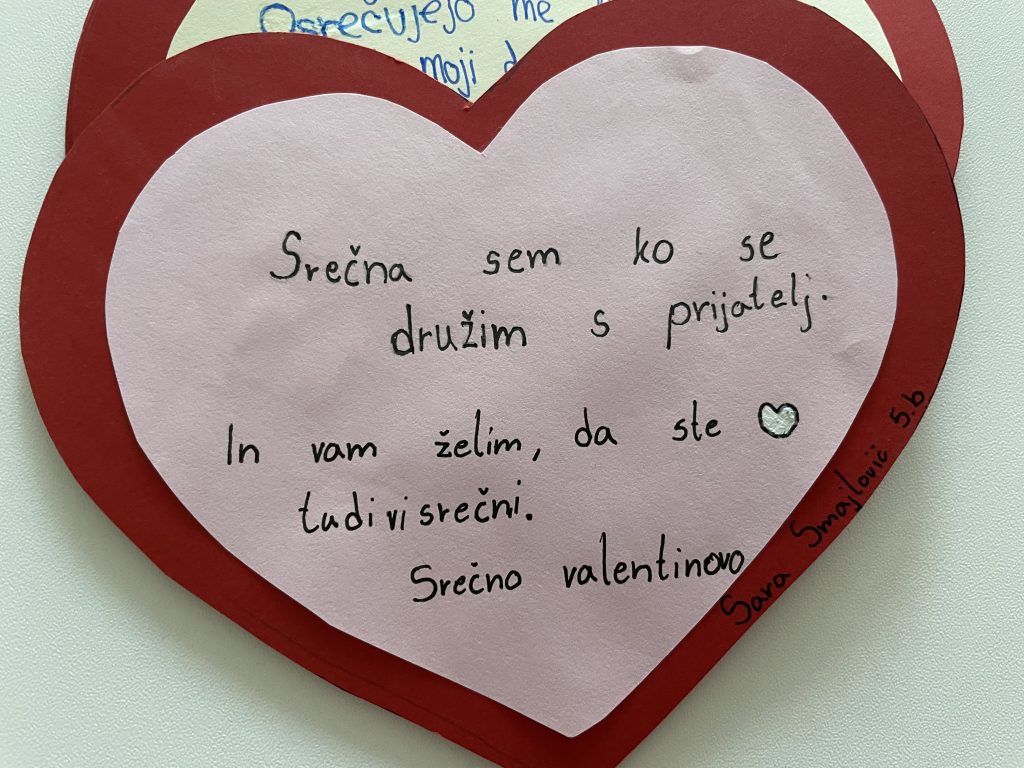 Osrečujejo me
moji
Srečna sem ko se
družim s prijatelj.
In vam želim, da ste
tudi vi srečni.
Srečno valentinovo
Sara Smajlović 5.b